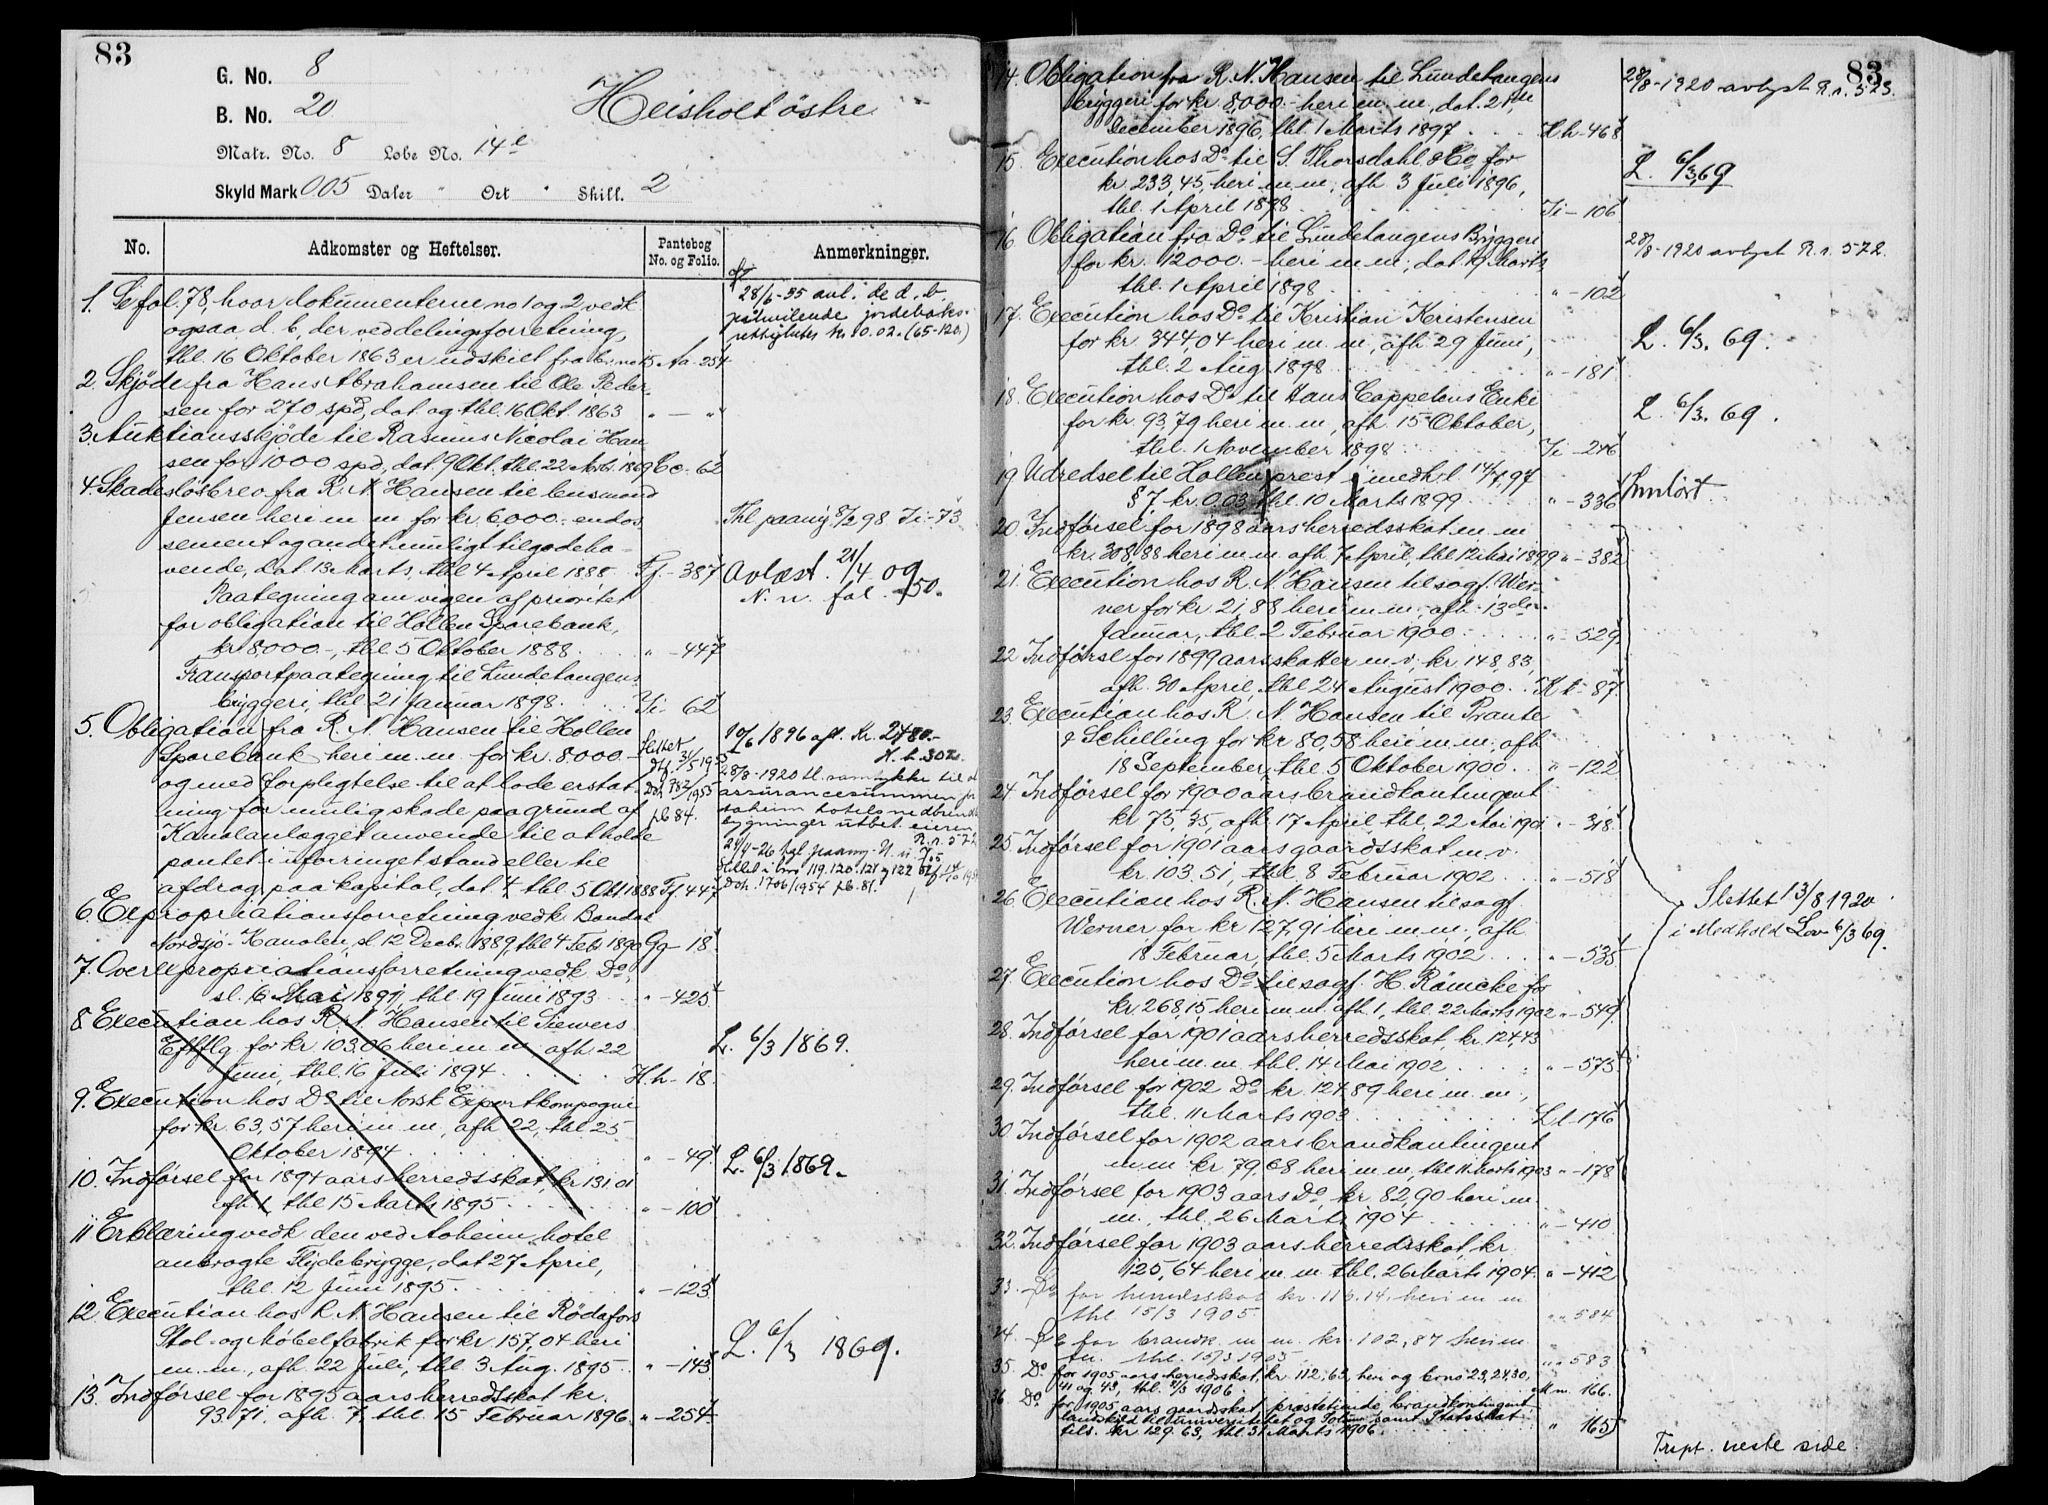 83
G. No. 8
B. No. 20
Heisholt östre
Matr. No. 8 Lobe No. 14e
Skyld Mark 0 05 Daler " Ort " Skill. 2
No. Adkomster og Heftelser. Pantebog No. og Folio. Anmerkninger.
1. Se fol. 78, hvor dokumenterne no 1 og 2 vedk
ogsaa d. b, der, ved delingsforretning,
thl. 16 Oktober 1863 er udskilt fra b. no 15. Aa - 254
28/6-35 anl. de d. b.
påhvilende jordeboks-
rettigheter kr 0.02. (65-120)
2. Skjøde fra Hans Abrahamsen til Ole Peder-
sen for 270 spd, dat og thl. 16 Okt. 1863 " — "
3. Auktionsskjøde til Rasmus Nicolai Han
sen for 1000 spd, dat. 9 Okt. thl. 22 Novb. 1869 Cc. 62
4. Skadesløsbrev fra R. N. Hansen til lensmand
Jensen heri m m for kr. 6000.- endos
sement og andet muligt tilgodeha-
vende, dat. 13 Marts, thl 4 April 1888 Ff. - 387
Thl paany 8/2 98 Ii - 73
Avlæst. 21/4 09
N. n. fol. 50.
Paategning om vigen af prioritet
for obligation til Hollen Sparebank,
kr 8,000-, thl 5 Oktober 1888. " - 447
Transportpaategning til Lundetangens
bryggeri, thl 21 Januar 1898. Ii - 62
5. Obligation fra R. N. Hansen til Hollen
Sparebank heri m. m. for kr. 8.000.-
og med forpligtelse til at lade erstat
ning for mulig skade paa grund af
Kanalanlægget anvende til at holde
pantet i uforringet stand eller til
afdrag paa kapital, dat. thl 5 Okt. 1888 Ff. 447
Slettet
10/6 1896 afl. Kr. 2480.-
H. h. 302.
28/8-1920 tl. samtykke til at
assurancesummen for
hotels nedbrændte
bygninger utbet. eieren
R. n. 572
6. Expropriationsforretning vedk. Bandak
Nordsjö-Kanalen, sl 12 Decbr. 1889, thl 4 Febr 1890 Gg - 18
7. Overexpropriationsforretning vedk. Do,
sl. 6 Mai 1891, thl 19 Juni 1893 " - 425
8 Execution hos R. N. Hansen til Siewers
Eftflg for kr 103,06 heri m m afh 22
Juni, thl. 16 Juli 1894 H. h - 18.
L. 6/3 1869.
9. Execution hos Do til Norsk Exportkompagni
for kr. 63,57 heri m m, afh 22, thl 25
Oktober 1894 " - 49.
L. 6/3 1869.
10. Indførsel for 1894 aars herredsskat, kr 131 01
afh 1, thl 15 Marts 1895 " - 100
11 Erklæring vedk den ved Aaheim hotel
anbragte Flydebrygge, dat 27 April,
thl. 12 Juni 1895. " - 123
12. Execution hos R. N. Hansen til Rödafors
Stol- og Møbelfabrik for kr. 157,04 heri
m. m., afh. 22 Juli, thl. 3 Aug. 1895 " - 143
L. 6/3 1869.
13. Indførsel for 1895 aars herredsskat kr.
93.71, afh. 7, thl. 15 Februar 1896, " - 254
83
14. Obligation fra R. N. Hansen til Lundetangens
bryggeri for kr. 8,000.- heri m. m, dat. 21de
December 1896, thl. 1 Marts 1897 H. h - 468
28/8-1920 avlyst R. n. 573.
15. Execution hos Do til S. Thorsdahl & Co for
kr. 233,45, heri m. m, afh. 3 Juli 1896,
thl. 1 April 1898 Ii - 106
L. 6/3 69
16. Obligation fra Do til Lundetangens Bryggeri
for kr. 12000.- heri m m, dat 19 Marts
thl. 1 April 1898 " - 102
28/8-1920 avlyst R. n. 572.
17. Execution hos Do til Kristian Kristensen
for kr. 344,04 heri m. m, afh 29 Juni,
thl. 2 Aug. 1898 " - 181
L. 6/3. 69.
18. Execution hos Do til Hans Cappelens Enke
for kr. 93,79 heri m. m, afh. 15 Oktober,
thl. 1 November 1898 Ii - 246
L. 6/3. 69.
19 Udredsel til Hollen prest i medh. l 14/7 97
§ 7, kr. 0.03 thl. 10 Marts 1899 " - 336
Innløst
20. Indførsel for 1898 aars herredsskat m. m
kr. 308,88 heri m. m afh 7 April, thl 12 Mai 1899 " - 382
21. Execution hos R. N. Hansen til sagf. Wer-
ner for kr. 21,88 heri m. m., afh. 13de
Januar, thl. 2 Februar 1900 " - 529
22 Indførsl for 1899 aars skatter m. v, kr. 148,83,
afh. 30 April, thl 24 August 1900 K k - 87
23. Execution hos R. N. Hansen til Prante
& Schilling for kr 80,58 heri m m, afh
18 September, thl. 5 Oktober 1900 " - 122
24. Indførsel for 1900 aars brandkontingent
kr. 75,35, afh. 17 April, thl. 22 Mai 1901 " - 318
25 Indførsel for 1901 aars gaardsskat m. v.
kr. 103,51, thl. 8 Februar 1902 " - 518
26 Execution hos R. N. Hansen til sagf.
Werner for kr. 127,91 heri m. m., afh
18 Februar, thl. 5 Marts 1902 " - 535
Slettet 13/8 1920
i Medhold Lov 6/3 69.
27. Execution hos Do til sagf. H. Rämcke for
kr. 268,15 heri m. m. afh. 1, thl. 22 Marts 1902 " - 549
28. Indførsel for 1901 aars herredsskat kr. 124,43
heri m. m. thl. 14 Mai 1902 " - 573
29. Indførsel for 1902 Do kr. 124,89 heri m. m.,
thl. 11 Marts 1903 L l - 176
30. Indførsel for 1902 aars brandkontingent
m m kr. 79,68 heri m. m, thl. 11 Marts 1903 " - 178
31. Indførsel for 1903 aars Do kr. 82,90 heri m
m., thl. 26 Marts 1904 " - 410
32. Indførsel for 1903 aars herredsskat, kr
125,64 heri m. m. thl. 26 Marts 1904. " - 412
33. Do for herredsskat kr. 116.14, heri m m
thl 15/3 1905 " " 584
34. Do for brandk. m m. kr. 102,87 heri m
m. thl. 15/3 1905 " " 583
35. Do for 1905 aars herredsskat, kr 112,63, heri og brno 23,24,30,
41 og 43, thl. 1906 M m. 166.
36. Do for 1905 aars gaardsskat, prestetiende, brandkontingent
landskyld til universitetet og Toten samt Statsskat
tils. kr 129.63, thl 31 Marts 1906. " 165
Trspt. neste side.